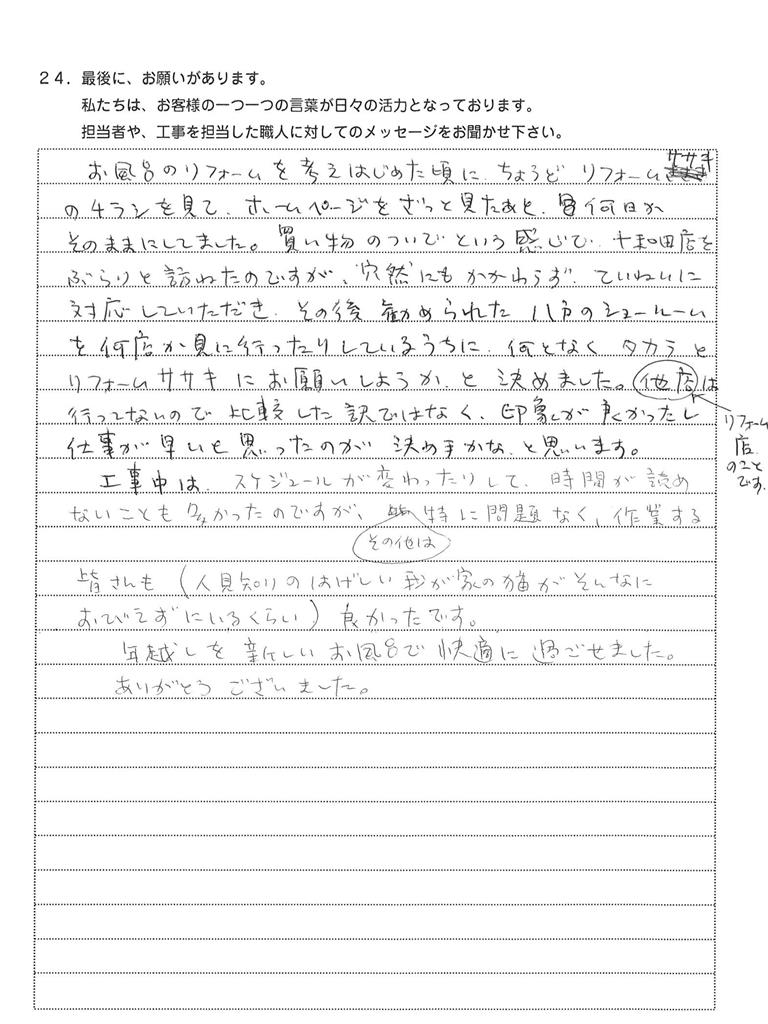 24．最後に、お願いがあります。
私たちは、お客様の一つ一つの言葉が日々の活力となっております。
担当者や、工事を担当した職人に対してのメッセージをお聞かせ下さい。
お風呂のリフォームを考えはじめた頃に、ちょうど リフォームササキ
のチラシを見て、ホームページをざっと見たあと、何日か
そのままにしてました。買い物のついでという感じで、十和田店を
ぶらりと訪ねたのですが、突然にもかかわらず、ていねいに
対応していただき、その後 勧められた 八戸のショールーム
を何店か見に行ったりしているうちに、何となく タカラと
リフォームササキにお願いしようか、と 決めました。他店は
行ってないので 比較した訳ではなく、印象が良かったし
仕事が早いと思ったのが 決め手かな、と思います。
リフォーム
店
のこと
です。
工事中は、スケジュールが変わったりして、時間が読め
ないことも多かったのですが、その他は 特に問題なく、作業する
皆さんも（人見知りのはげしい我が家の猫がそんなに
おびえずにいるくらい）良かったです。
年越しを新しいお風呂で快適に過ごせました。
ありがとうございました。